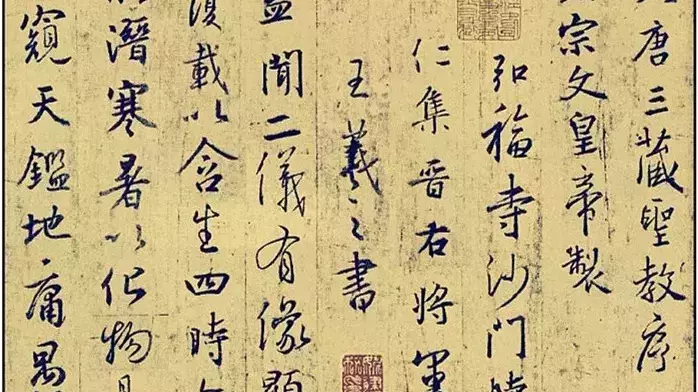 唐三藏聖教序
宗文皇帝製
弘福寺沙門
仁集晋右將軍
王羲之書
蓋聞二儀有像顯
覆載以含生四時
潛寒暑以化物
窺天鑑地庸愚